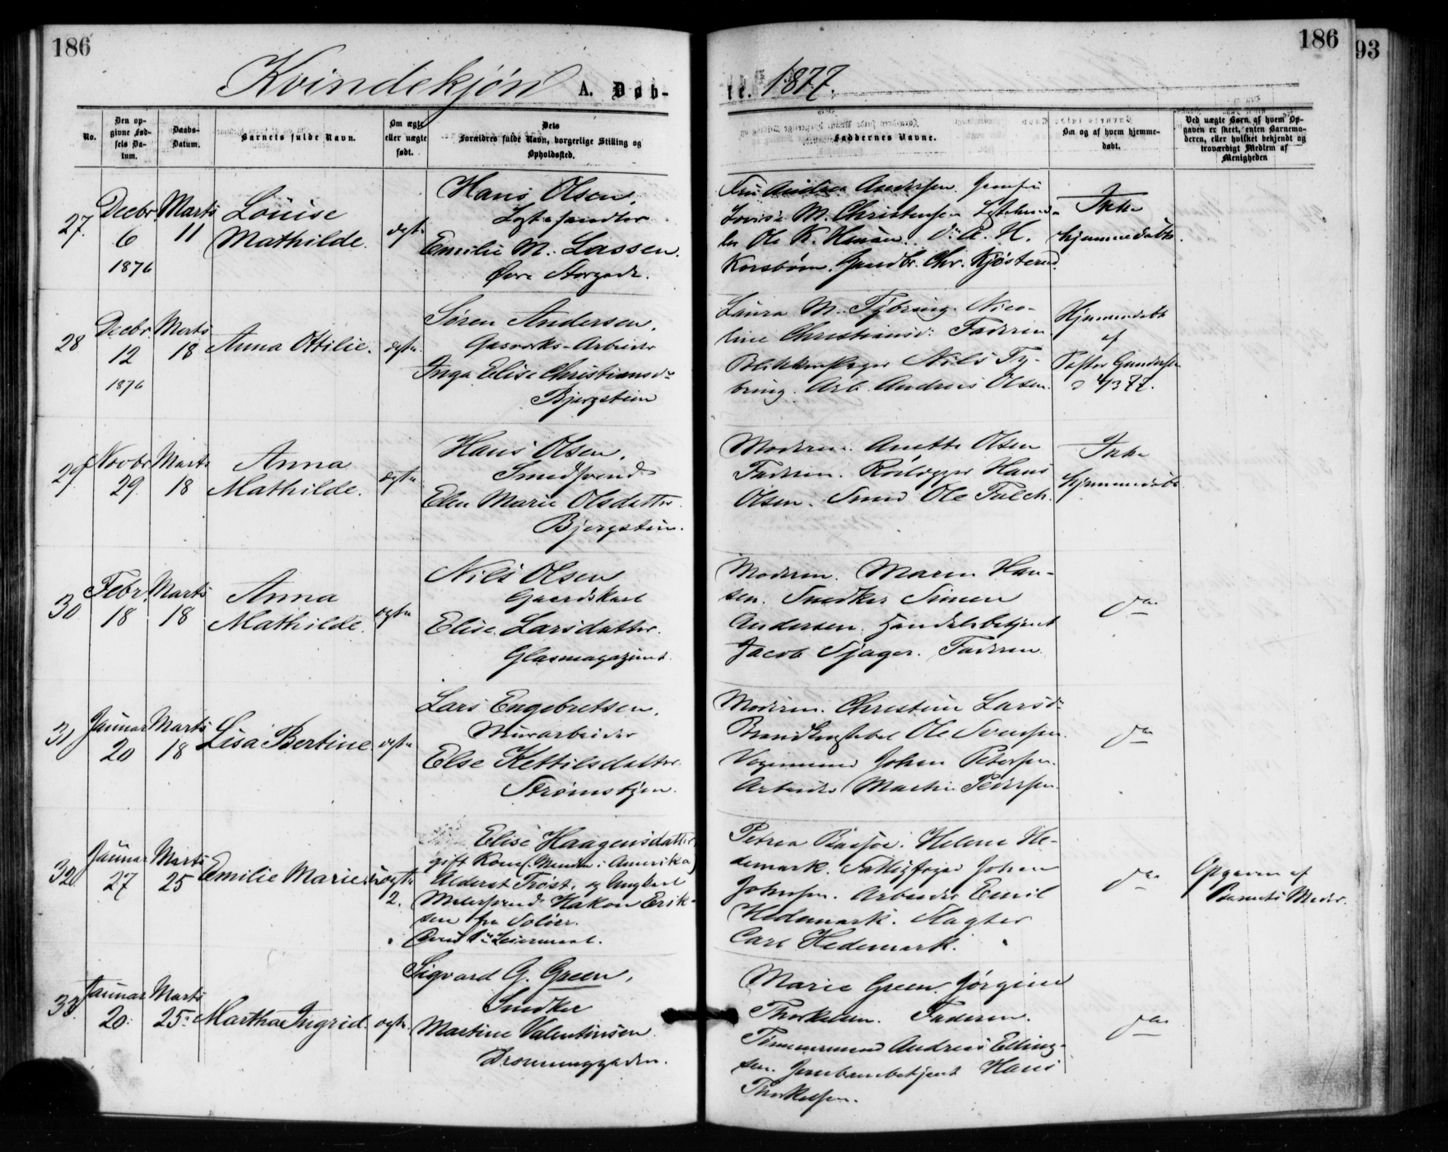 186
186
93
Kvindekjøn A. Døb-
te. 1877.
No.
Den op-
givne Fød-
sels Da-
tum.
Daabs-
Datum.
Barnets fulde Navn.
Om ægte
eller uægte
født.
Dets
Forældres fulde Navn, borgerlige Stilling og
Opholdssted.
Faddernes Navne.
Om og af hvem hjemme-
døbt.
Ved uægte Børn, af hvem Op-
gaven er skeet, enten Barnemo-
deren, eller hvilket bekjendt og
troværdigt Medlem af
Menigheden
27.
Decbr
6
1876
Marts
11
Louise
Mathilde.
ægte
Hans Olsen,
Emilie M. Lassen.
Øvre Storgade.
Fru Andrea Andersen.
Lovise M. Christensen
Ole K. Hansen.
Ikke
hjemmedøbt.
28
Decbr.
12
1876
Marts
18
Anna Ottilie.
ægte
Søren Andersen.
Gasverks-Arbeider
Inga Elise Christiansdr
Bjergstien
Laura M. Tybring. Nico-
line Christiansdr. Faderen
Nils Ty-
bring. Arb. Andreas Olsen.
Hjemmedøbt
af
Pastor
4/3 77.
29
Novbr
29.
Marts
18
Anna
Mathilde.
ægte
Hans Olsen.
Smedsvend
Elen Marie Olsdatter
Bjergstien.
Moderen. Anette Olsen
Faderen. Hans
Olsen. Smed Ole Falch.
Ikke
hjemmedøbt
30
Febr.
18
Marts
18
Anna
Mathilde.
ægte
Nils Olsen
Gaardskarl
Elise Larsdatter.
Glasmagazinet.
Moderen. Maren Han-
sen. Snedker Simen
Andersen. Handelsbetjent
Jacob Sjager. Faderen.
do
31
Januar
20
Marts
18
Lisa Bertine
ægte
Lars Engebretsen.
Murarbeider
Else Kettilsdatter.
Strømsbyen.
Moderen. Christine Larsdr
Ole Svensen
Vognmand Johan Petersen.
Arbeider Martin Pedersen.
do
32
Januar
27
Marts
25
Emilie Marie
uægte
2.
Elise Haagensdatter,
gift Kone, Manden i Amerika,
Malersvend Hakon Erik-
sen fra Soløer.
Leiermaal.
Petrea Helene He-
demark. Johan
Johnsen. Arbeider Emil
Hedemark. Slagter
Carl Hedemark.
do
Opgaven af
Barnets Moder.
33.
Januar
20.
Marts
25.
Martha Ingrid.
ægte
Sigvard G. Green,
Snedker
Martine Valentinsen.
Dronninggaden.
Marie Green. Jørgine
Thorkelsen. Faderen.
Tømmermand Andreas Elling-
sen. Jernbanebetjent Hans
Thorkelsen.
do